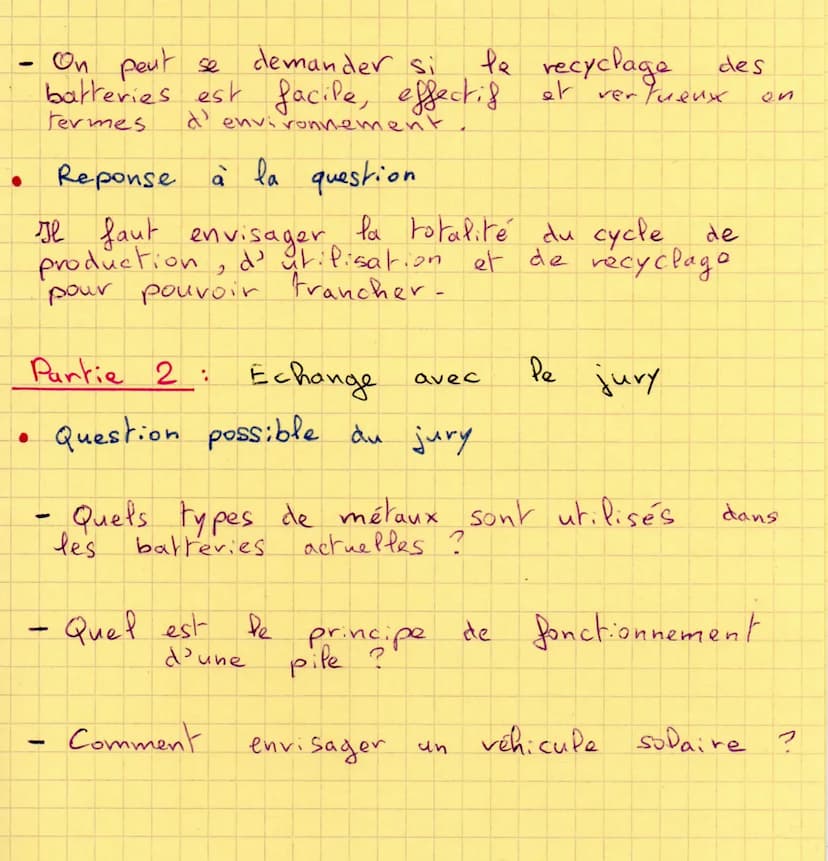 - On peut se demander si le recyclage des
batteries est facile, effectif et vertueux en
termes d'environnement.
• Reponse à la question
Il faut envisager la totalité du cycle de
production, d'utilisation et de recyclage
pour pouvoir trancher -
Partie 2 : Echange avec le jury
• Question possible du jury
- Quels types de métaux sont utilisés dans
les batteries actuelles ?
- Quel est le principe de fonctionnement
d'une pile ?
- Comment envisager un véhicule solaire ?